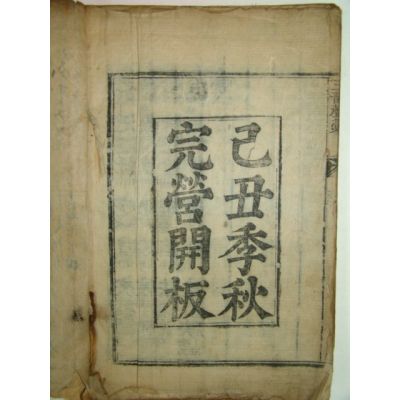 己丑季秋
完營開板